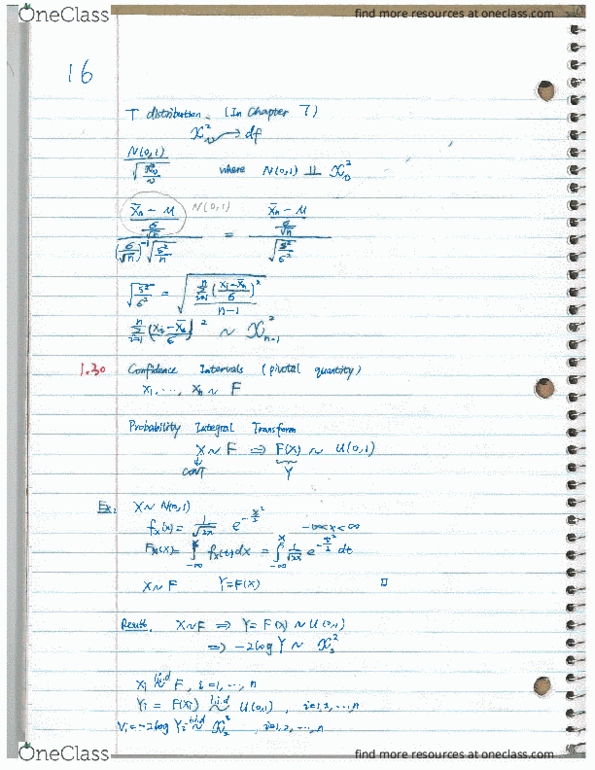 OneClass
find more resources at oneclass.com
16
T distribution. (In Chapter 7)
χ²_ν → df
N(0,1) / √(χ²_ν / ν) where N(0,1) ⊥⊥ χ²_ν
(X̄n - μ) / (σ/√n) N(0,1)
/ (σ/√n)⁻¹ √(S²/n) = ((X̄n - μ) / (σ/√n)) / √(S²/σ²)
√(S²/σ²) = √(Σ_{i=1}^{n} ((Xi - X̄n)/σ)² / (n-1))
Σ_{i=1}^{n} ((Xi - X̄n)/σ)² ~ χ²_{n-1}
1.30 Confidence Intervals (pivotal quantity)
X1, ..., Xn ~ F
Probability Integral Transform
X ~ F ⇒ F(X) ~ U(0,1)
CONT Y
Ex: X ~ N(0,1)
fx(x) = 1/√2π e^{-x²/2} -∞<x<∞
Fx(x) = ∫_{-∞}^{x} fx(t)dx = ∫_{-∞}^{x} 1/√2π e^{-x²/2} dt
X ~ F Y=F(X) □
Result. X~F ⇒ Y = F(X) ~ U(0,1)
⇒ -2log Y ~ χ²_2
Xi i.i.d ~ F, i=1, ..., n
Yi = F(Xi) i.i.d ~ U(0,1), i=1,2, ..., n
Vi = -2log Yi i.i.d ~ χ²_2, i=1,2, ..., n
OneClass
find more resources at oneclass.com